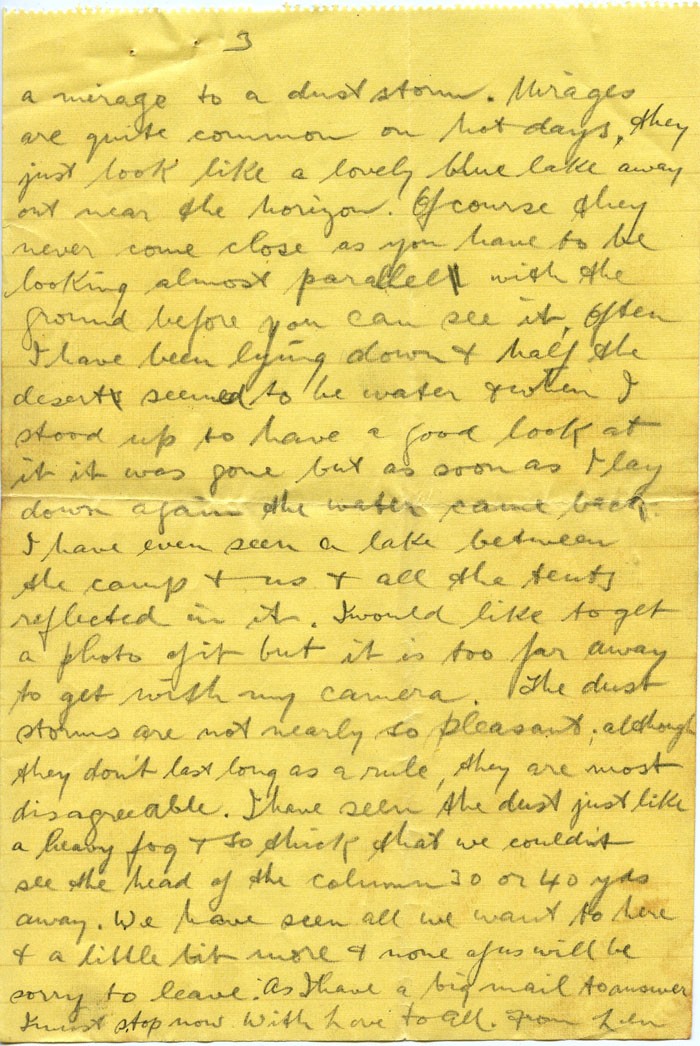 3
a mirage to a dust storm. Mirages
are quite common on hot days, they
just look like a lovely blue lake away
out near the horizon. Of course they
never come close as you have to be
looking almost parallel with the
ground before you can see it. Often
I have been lying down & half the
desert seemed to be water & when I
stood up to have a good look at
it it was gone but as soon as I lay
down again the water came back.
I have even seen a lake between
the camp & us & all the tents
reflected in it. I would like to get
a photo of it but it is too far away
to get with my camera. The dust
storms are not nearly so pleasant, although
they don't last long as a rule, they are most
disagreeable. I have seen the dust just like
a heavy fog & so thick that we couldn't
see the head of the column 30 or 40 yds
away. We have seen all we want to here
& a little bit more & none of us will be
sorry to leave. As I have a big mail to answer
I must stop now With Love to All. From Len